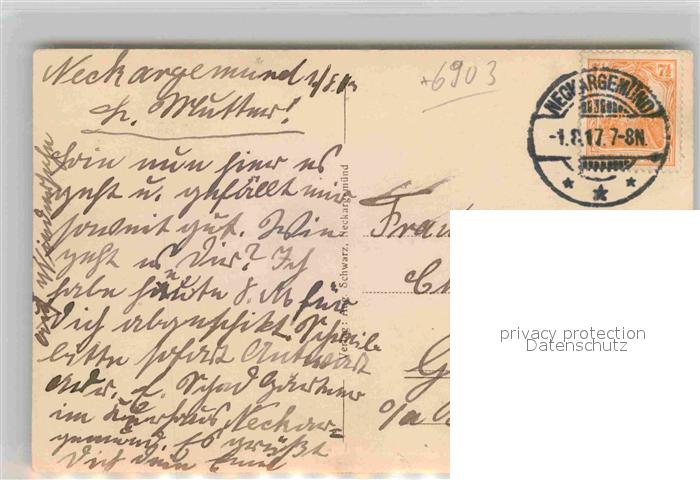 Neckargemünd 1/8.17
L. Mutter!
bin nun hier es
geht u. gefällt mir
soweit gut. Wie
geht es Dir? Ich
habe heute 8. M für
Dich abgeschikt Schreibe
bitte sofort Antwort
Adr. E. Schad Gärtner
im Kurhaus Neckar
gemünd. Es grüßt
Dich dein Emil
auf Wiedersehn
*6903
Verlag: Schwarz, Neckargemünd
7½
NECKARGEMÜND
-1.8.17.7-8N.
Frau
G
o/a
privacy protection
Datenschutz